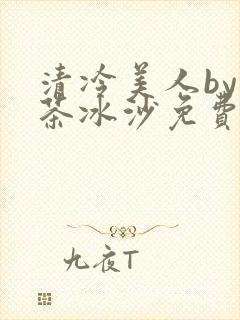 清冷美人by
茶冰沙免费
九夜T